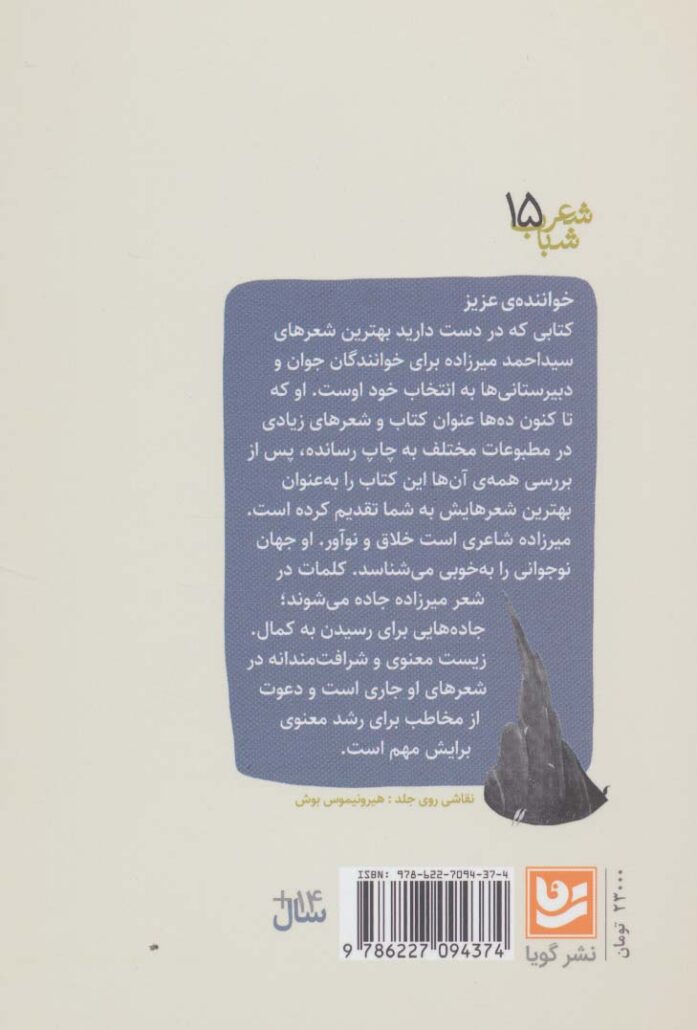 شعر
شباب ۱۵
خواننده‌ی عزیز
کتابی که در دست دارید بهترین شعرهای
سیداحمد میرزاده برای خوانندگان جوان و
دبیرستانی‌ها به انتخاب خود اوست. او که
تا کنون ده‌ها عنوان کتاب و شعرهای زیادی
در مطبوعات مختلف به چاپ رسانده، پس از
بررسی همه‌ی آن‌ها این کتاب را به‌عنوان
بهترین شعرهایش به شما تقدیم کرده است.
میرزاده شاعری است خلاق و نوآور. او جهان
نوجوانی را به‌خوبی می‌شناسد. کلمات در
شعر میرزاده جاده می‌شوند؛
جاده‌هایی برای رسیدن به کمال.
زیست معنوی و شرافت‌مندانه در
شعرهای او جاری است و دعوت
از مخاطب برای رشد معنوی
برایش مهم است.
نقاشی روی جلد : هیرونیموس بوش
۲۳۰۰۰ تومان
نشر گویا
ISBN: 978-622-7094-37-4
9 786227 094374
+۱۴
سال